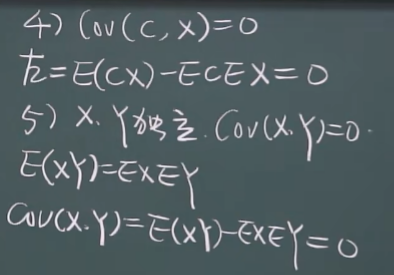 4) Cov(C,X)=0
左=E(CX)-ECEX=0
5) X.Y独立.Cov(X.Y)=0.
E(XY)=EXEY
Cov(X.Y)=E(XY)-EXEY=0